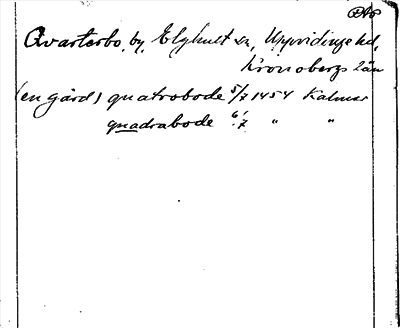 Qvarterbo, by, Elghult sn, Uppvidinge hd,
Kronobergs län
(en gård) quatrobode 5/7 1454 Kalmar
quadrabode 6/7 " "